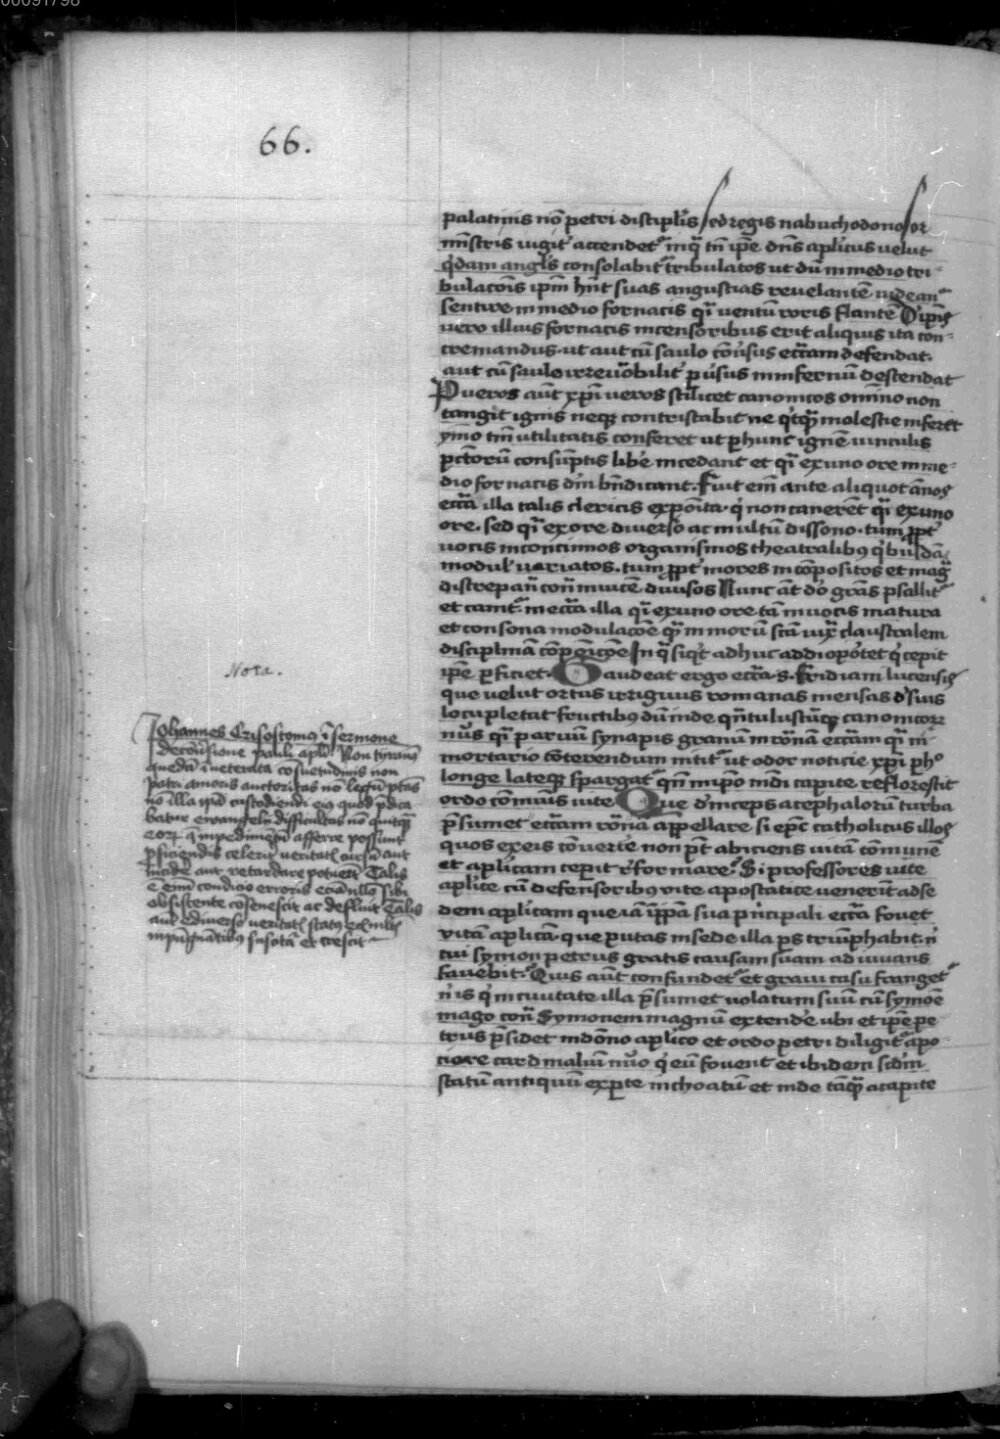 66.
palatinis nō petri discipl̄is sed regis nabuchodonosor
mīstris iugit᷑ accendet᷑ inq̄ tn̄ ip̄e dn̄s ap̄licus velut
q̇dam angl̄s consolabit᷑ tribulatos ut dū in medio tri-
bulacōis ip̄m hn̄t suas angustias reuelantē videan᷑
sentire in medio fornacis q̄i uentū roris flantē
vero illius fornacis incensoribus erit aliquis ita con-
cremandus. ut aut cū saulo cōūsus ecc̄am defendat.
aut cū saulo irreuocabilit᷑ pūsus in infernū descendat
Pueros aūt xp̄i ueros scilicet canonicos omīno non
tangit ignis neq; contristabit ne q̇cq̄ molestie inferet
ymo tm̄ utilitatis conferet ut p hunc ignē uinculis
pctorū consūptis libe incedant et q̄i ex uno ore in me-
dio fornacis dm̄ bn̄dicant. Fuit em̄ ante aliquot ānos
ecc̄a illa talis clericis expoīta. q̇ non canerēt q̄i ex uno
ore. sed q̄i ex ore diuerso ac multū dissono. tum ꝓpt᷑
uocis inconcinnos organismos theatralibꝰ q̇busdā
modul᷑ uariatos. tum ꝓpt᷑ mores incōpositos et mag̃
discrepan̄ con̄ inuicē diuisos Nunc aūt dō grās psallit᷑
et canit᷑ in ecc̄a illa q̄i ex uno ore tā in uocis matura
et consona modulacōe q̄ in morū scd̄m uix claustralem
disciplinā In q̄ siq̇t adhuc addi oportet q̇ cepit
ip̄e pficiet. Gaudeat ergo ecc̄a. S. Fridiani lucensis
que velut ortus irriguus romanas mensas de suis
locupletat fructibus dū inde canonicorꝝ
nūs q̄i paruū synapis granum in rōnā ecc̄am q̄i in
mortario cōterendum mittit᷑ ut odor noticie xp̄i p hō
longe lateq; spargat᷑ qn̄ in ipō mdi capite reflorescit
ordo cōmunis uite Que deinceps acephalorū turba
p̄sumet ecc̄am rōna appellare si ep̄c catholicus illos
quos ex eis cōuerte non pt̄ abiciens uitā cōmunē
et ap̄licam cepit reformare. Si professores uite
ap̄lice cū defensoribꝰ vite apostatice uenerit ad se
dem ap̄licam que iā īp̄pā sua pncipali ecc̄a fouet
vitā ap̄licā. que putas in sede illa ps triūphabit. n̄
cui symon petrus gratis causam suam adiuuans
fauebit. Quis aūt confundet᷑ et graui casu franget᷑
n̄ is q̇ in ciuitate illa p̄sumet uolatum suū cū symōe
mago con̄ Symonem magnū extende ubi et ip̄e pe
trus p̄sidet in dōno ap̄lico et ordo petri diligit᷑ a po-
ciore cardinaliū nūo q̇ eū fouent et ibidem scdm̄
statū antiquū ex pte inchoatū et inde tāq̄ a capite
Nota.
Johannes Crisostomus ī sermone
de cōuersione pauli apl̄i Non tyrannꝰ
quedā inueterata cōsuetudinis non
patri amoris auctoritas nō legū ptās
nō illa ip̄a custodiendi eiꝰ quod p̄dica
batur ewangelij difficultas nō quicq̄
eoꝝ q̄ impedimētū afferre possunt
pficiendis celerit᷑ veritatis cursū aut
incide aut retardare potuerūt Talis
ē enim condicio erroris eciā nullo sibi
obsistente cōsenescit ac defluit Talis
autē e diuerso veritatis status ē
impugnātibꝰ suscitat᷑ et crescit